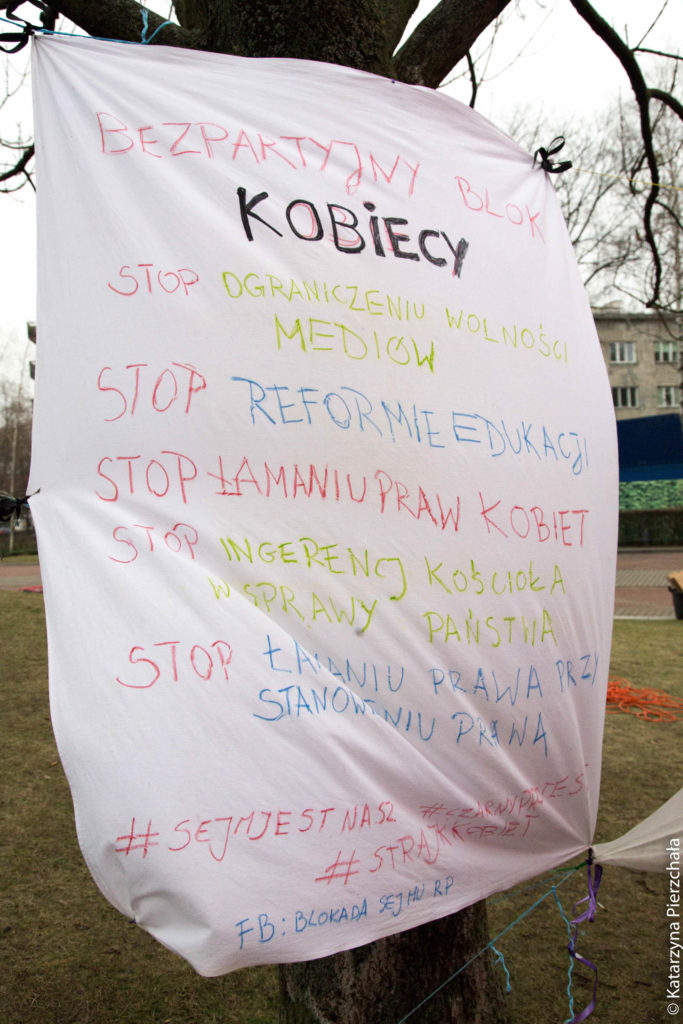 BEZPARTYJNY BLOK
KOBIECY
STOP OGRANICZENIU WOLNOŚCI
MEDIOW
STOP REFORMIE EDUKACJI
STOP ŁAMANIU PRAW KOBIET
STOP INGERENCJ KOŚCIOŁA
W SPRAWY PAŃSTWA
STOP ŁAMANIU PRAWA PRZY
STANOWIENIU PRAWA
#SEJMJESTNASZ #CZARNYPROTEST
#STRAJKKOBIET
FB: BLOKADA SEJMU RP
© Katarzyna Pierzchała